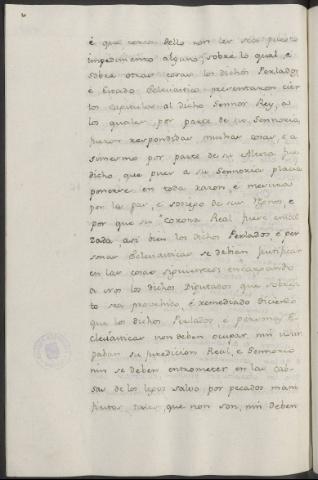 é que cerca dello non les sea puesto
impedimento alguno, sobre lo qual, e
sobre otras cosas los dichos Perlados,
é Estado Eclesiastico presentaron cier
tos capitulos al dicho Sennor Rey, a
los quales por parte de su Sennoria
fueron respondidas muchas cosas, e a
simesmo por parte de su Alteza fue
dicho, que pues a su Sennoria placia
ponerse en toda razon, é mesura
por la paz, e sosiego de sus Reynos, e
por que su Corona Real fuese ensal
zada, asi bien los dichos Perlados, é per
sonas Eclesiasticas se debian justificar
en las cosas siguientes encargando
a nos los dichos Diputados que sobre es
to sea provehido, é remediado diciendo
que los dichos Perlados, é personas E
clesiasticas non deben ocupar, nin usur
paban su juredicion Real, e Sennorio
nin se deben entrometer en las cab
sas de los legos salvo por pecados mani
fiestos, tales, que non son, nin deben